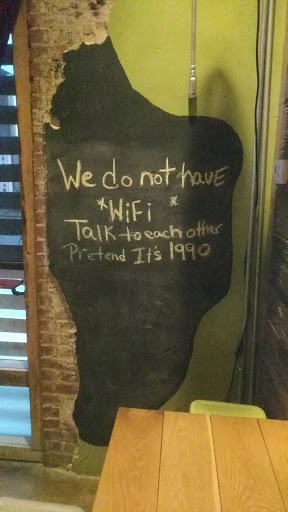 We do not have
*WiFi *
Talk to each other
Pretend It's 1990